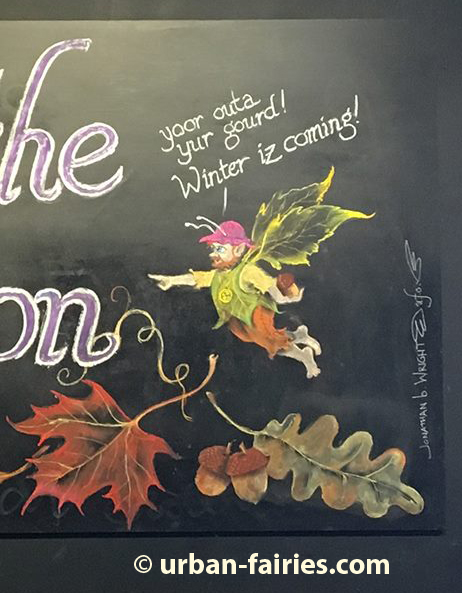 the
yoor outa
yur gourd!
Winter iz coming!
on
JONATHAN b. WRIGHT
© urban-fairies.com